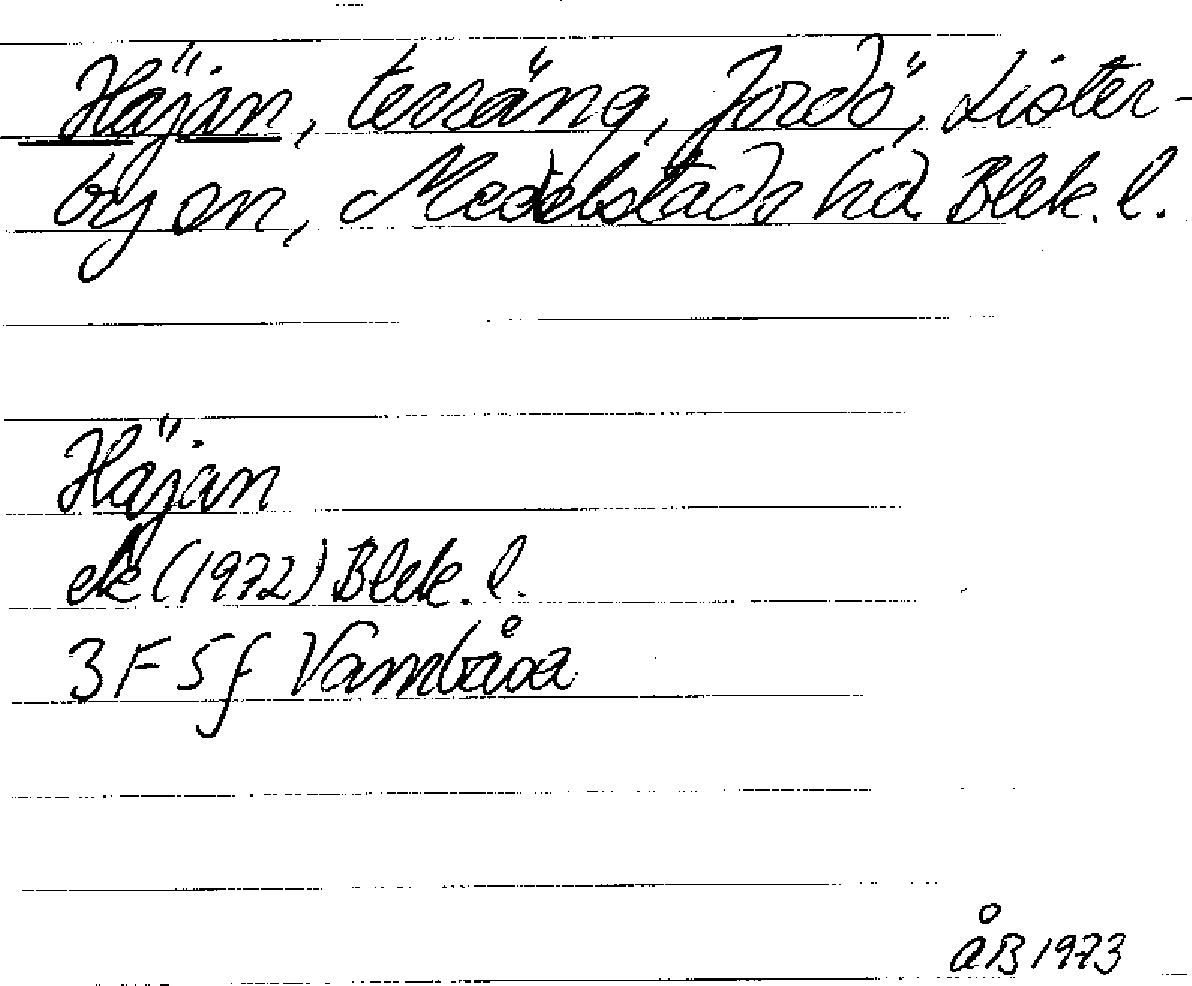 Häjan, terräng, Jordö, Lister-
by sn, Medelstads hd Blek. l.
Häjan
ek (1972) Blek. l.
3F 5f Vambåsa
ÅB 1973